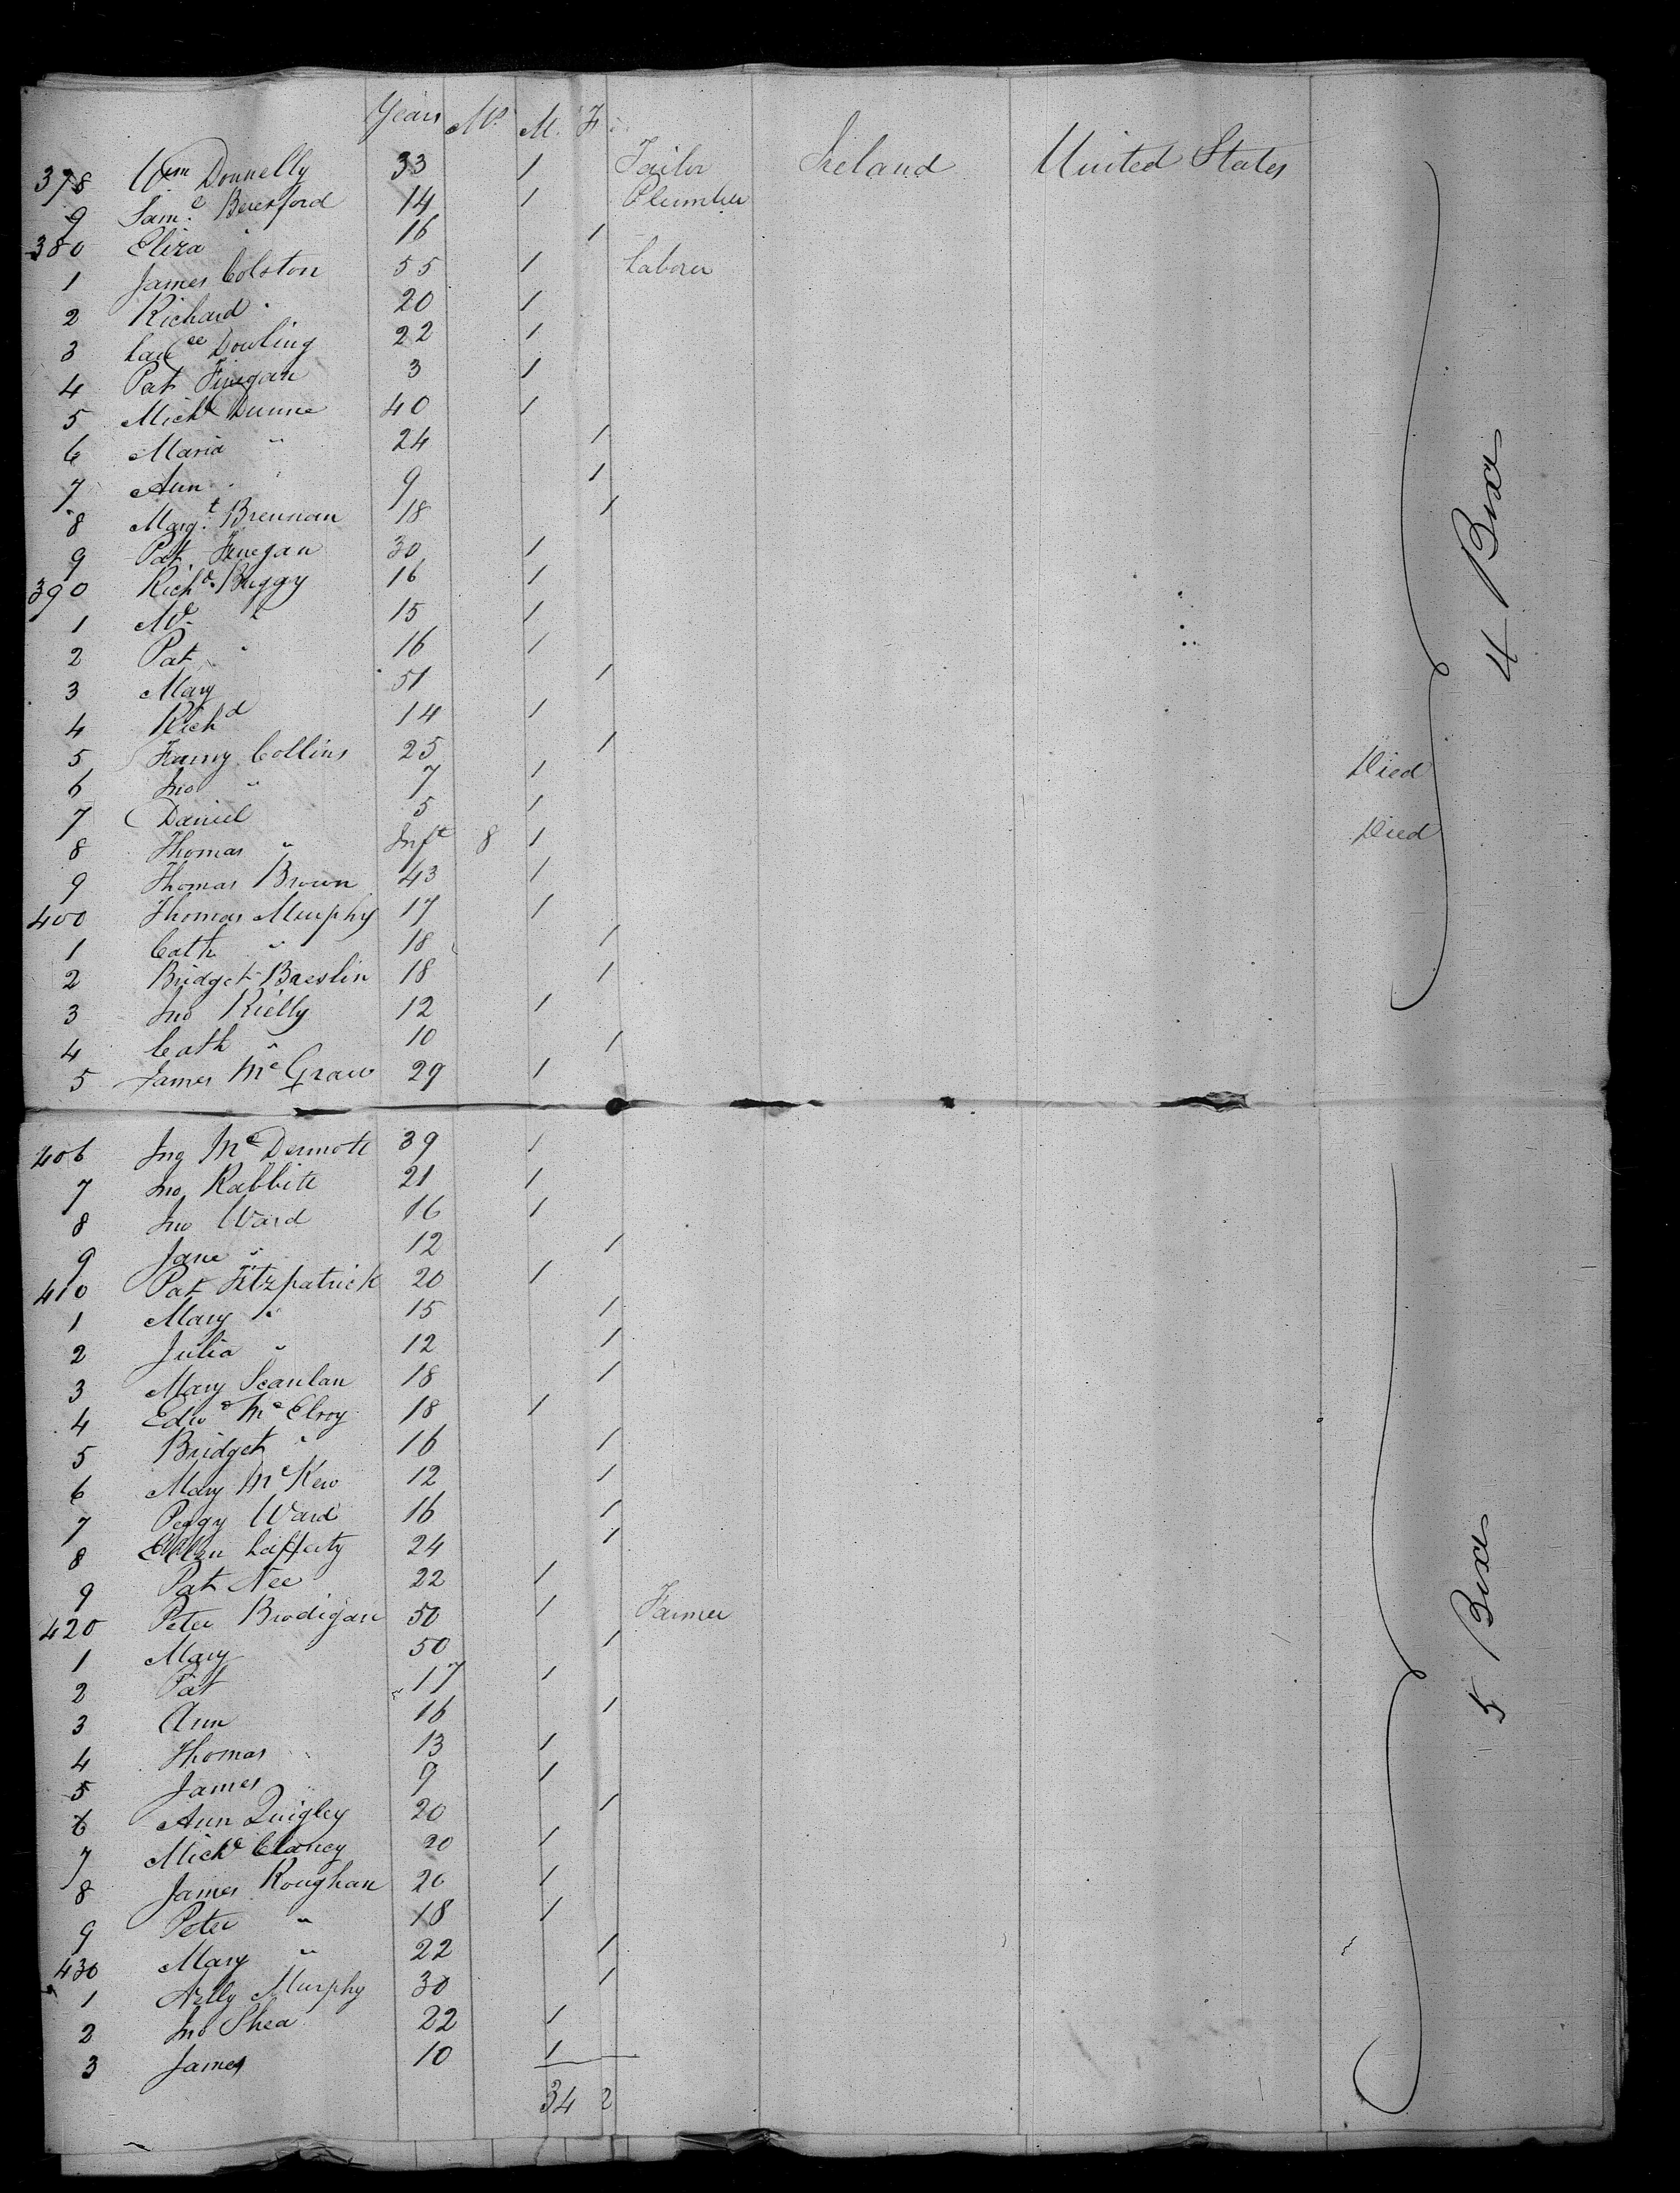 Years Mo. M. F
378 Wm Donnelly 33 1 Tailor Ireland United States
9 Saml Beresford 14 1 Plumber
380 Eliza " 16 1
1 James Colston 55 1 Laborer
2 Richard " 20 1
3 Lawce Dowling 22 1
4 Pat Finegan 3 1
5 Michl Dunne 40 1
6 Maria " 24 1
7 Ann " 9 1
8 Margt Brennan 18 1
9 Pat Finegan 30 1
390 Richd Buggy 16 1
1 " 15 1
2 Pat " 16 1
3 Mary 51 1
4 Richd 14 1
5 Fanny Collins 25 1 Died
6 Jno " 7 1
7 Daniel 5 1
8 Thomas " Inft 8 1 Died
9 Thomas Brown 43 1
400 Thomas Murphy 17 1
1 Cath " 18 1
2 Bridget Breslin 18 1
3 Jno Rielly 12 1
4 Cath " 10 1
5 James McGraw 29 1
4 Bxx
406 Jno McDermott 39 1
7 Jno Rabbitt 21 1
8 Jno Ward 16 1
9 Jane " 12 1
410 Pat Fitzpatrick 20 1
1 Mary " 15 1
2 Julia " 12 1
3 Mary Scanlan 18 1
4 Edwd McElroy 18 1
5 Bridget " 16 1
6 Mary McKew 12 1
7 Peggy Ward 16 1
8 Ellen Lafferty 24 1
9 Pat Nee 22 1
420 Peter Brodigan 50 1 Farmer
1 Mary 50 1
2 Pat 17 1
3 Ann 16 1
4 Thomas 13 1
5 James 9 1
6 Ann Quigley 20 1
7 Michl Clancy 20 1
8 James Roughan 20 1
9 Peter " 18 1
430 Mary " 22 1
1 Nelly Murphy 30 1
2 Jno Shea 22 1
3 James 10 1
34 2
5 Bxx